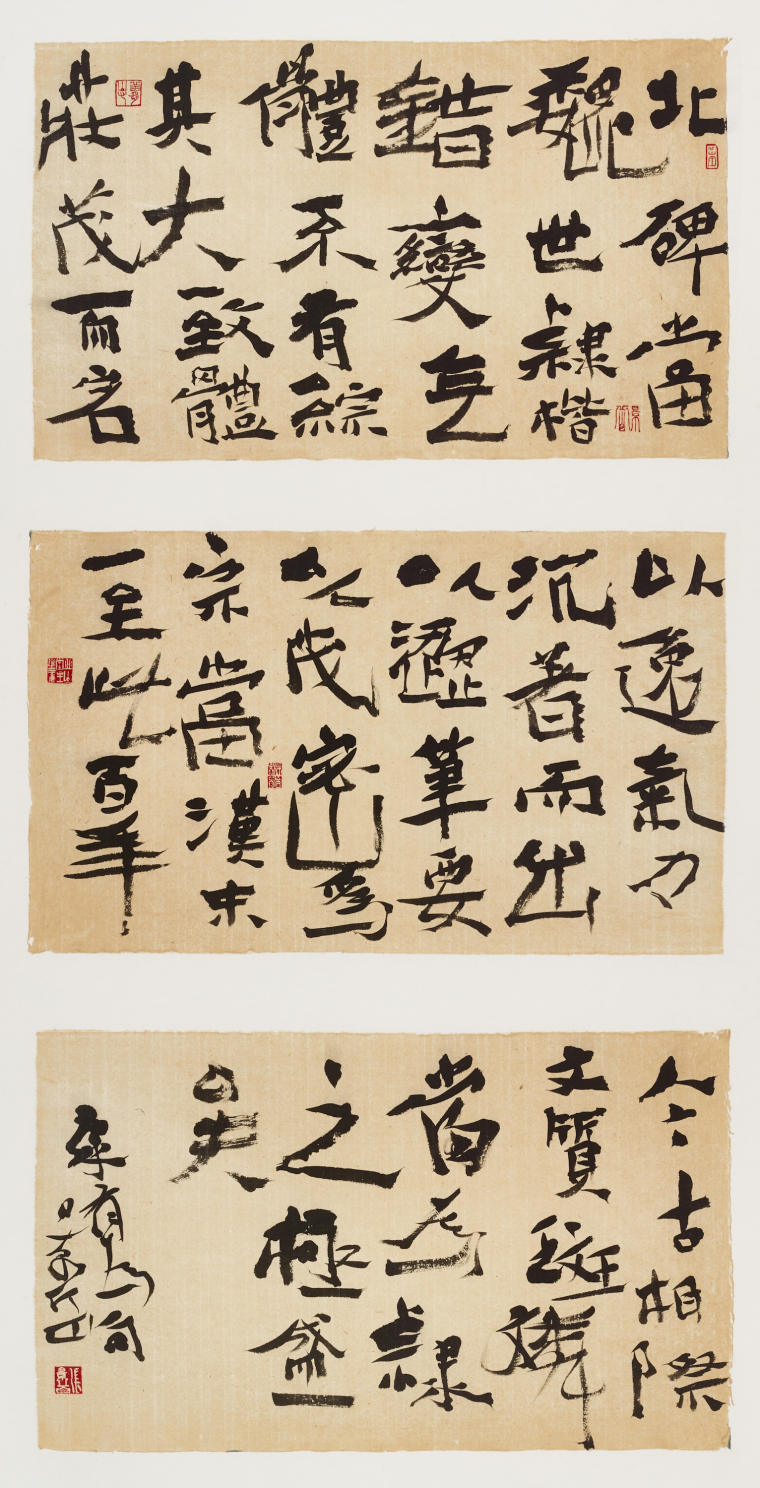 北碑當
魏世隸楷
錯變无
體不有綜
其大致體
莊茂而宕
以逸氣力
沉著而出
以澀筆要
以茂密爲
宗當漢末
至此百年
今古相際
文質斑璘
當為隸
之極盛
矣
康有為句